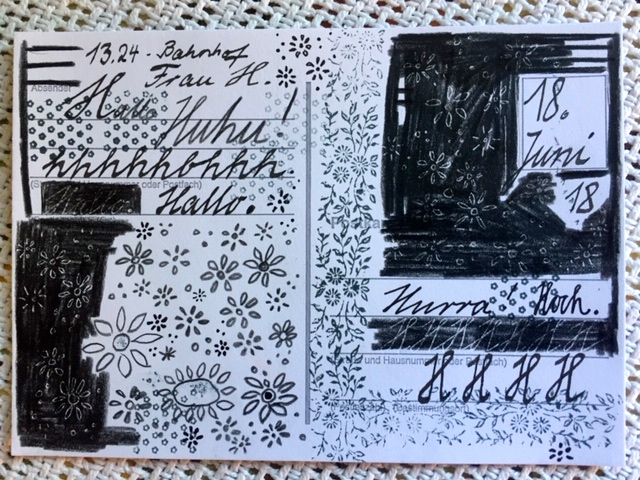 13.24 - Bahnhof
Frau H.
Absender
Hallo
Huhu!
hhhhhhbhhh.
(Straße und Hausnummer oder Postfach)
Hallo.
18.
Juni
18
Hurra Hoch.
(Straße und Hausnummer oder Postfach)
H H H H
(Bestimmungsort)